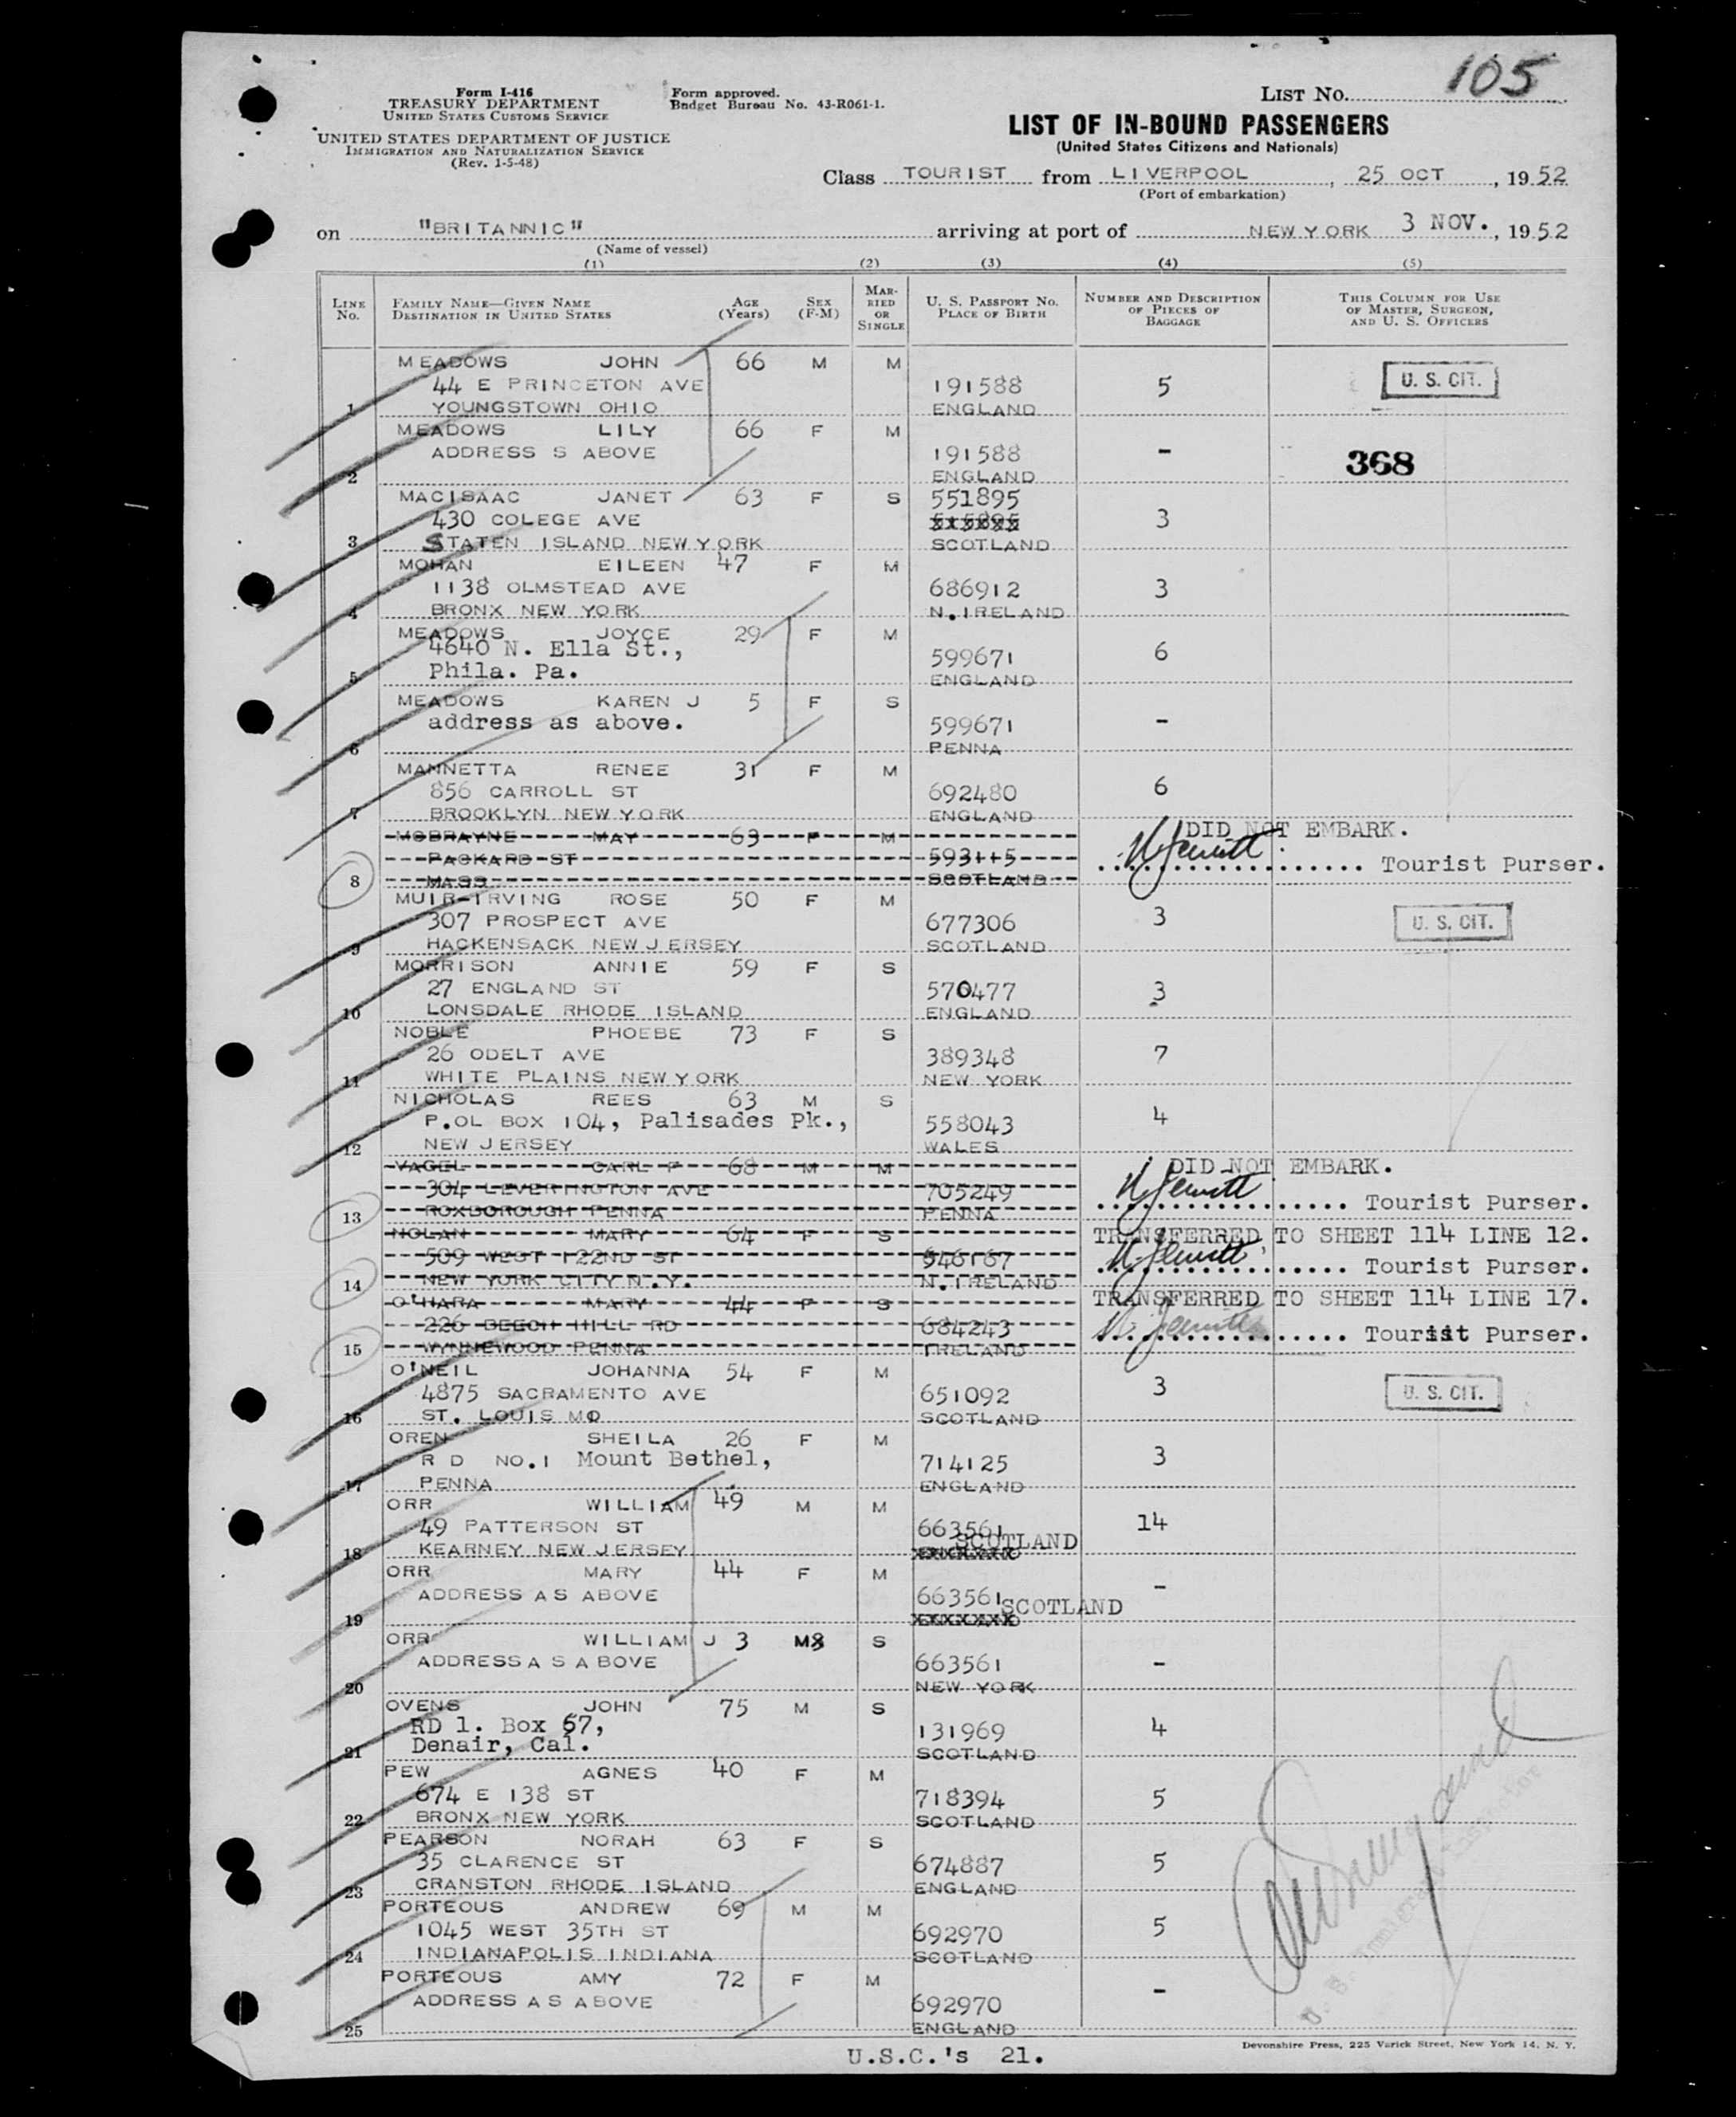 105
Form I-416
TREASURY DEPARTMENT
UNITED STATES CUSTOMS SERVICE
UNITED STATES DEPARTMENT OF JUSTICE
IMMIGRATION AND NATURALIZATION SERVICE
(Rev. 1-5-48)
Form approved.
Budget Bureau No. 43-R061-1.
LIST NO.
LIST OF IN-BOUND PASSENGERS
(United States Citizens and Nationals)
Class TOURIST from LIVERPOOL, 25 OCT, 1952
(Port of embarkation)
on "BRITANNIC" arriving at port of NEW YORK 3 NOV., 1952
(Name of vessel)
(1) (2) (3) (4) (5)
LINE NO. FAMILY NAME—GIVEN NAME DESTINATION IN UNITED STATES AGE (Years) SEX (F-M) MARRIED OR SINGLE U. S. PASSPORT NO. PLACE OF BIRTH NUMBER AND DESCRIPTION OF PIECES OF BAGGAGE THIS COLUMN FOR USE OF MASTER, SURGEON, AND U. S. OFFICERS
MEADOWS JOHN 66 M M
44 E PRINCETON AVE 191588 5 U. S. CIT.
1 YOUNGSTOWN OHIO ENGLAND
MEADOWS LILY 66 F M
ADDRESS S ABOVE 191588 - 368
2 ENGLAND
MACISAAC JANET 63 F S 551895
430 COLEGE AVE 3
3 STATEN ISLAND NEW YORK SCOTLAND
MOHAN EILEEN 47 F M
1138 OLMSTEAD AVE 686912 3
4 BRONX NEW YORK N.IRELAND
MEADOWS JOYCE 29 F M
4640 N. Ella St., 599671 6
5 Phila. Pa. ENGLAND
MEADOWS KAREN J 5 F S
address as above. 599671 -
6 PENNA
MANNETTA RENEE 31 F M
856 CARROLL ST 692480 6
7 BROOKLYN NEW YORK ENGLAND
MCBRAYNE MAY 63 F M DID NOT EMBARK.
PACKARD ST 593115 Tourist Purser.
8 MASS SCOTLAND
MUIR-IRVING ROSE 50 F M
307 PROSPECT AVE 677306 3 U. S. CIT.
9 HACKENSACK NEW JERSEY SCOTLAND
MORRISON ANNIE 59 F S
27 ENGLAND ST 570477 3
10 LONSDALE RHODE ISLAND ENGLAND
NOBLE PHOEBE 73 F S
26 ODELT AVE 389348 7
11 WHITE PLAINS NEW YORK NEW YORK
NICHOLAS REES 63 M S
P.OL BOX 104, Palisades Pk., 558043 4
12 NEW JERSEY WALES
VAGEL CARL F 68 M M DID NOT EMBARK.
304 LEVERINGTON AVE 705249 Tourist Purser.
13 ROXBOROUGH PENNA PENNA
NOLAN MARY 64 F S TRANSFERRED TO SHEET 114 LINE 12.
509 WEST 122ND ST 546167 Tourist Purser.
14 NEW YORK CITY N.Y. N.IRELAND
O'HARA MARY 44 F S TRANSFERRED TO SHEET 114 LINE 17.
226 BEECH HILL RD 684243 Tourist Purser.
15 WYNNEWOOD PENNA IRELAND
O'NEIL JOHANNA 54 F M
4875 SACRAMENTO AVE 651092 3 U. S. CIT.
16 ST. LOUIS MO SCOTLAND
OREN SHEILA 26 F M
R D NO.1 Mount Bethel, 714125 3
17 PENNA ENGLAND
ORR WILLIAM 49 M M
49 PATTERSON ST 663561 14
18 KEARNEY NEW JERSEY SCOTLAND
ORR MARY 44 F M
ADDRESS AS ABOVE 663561 SCOTLAND -
19
ORR WILLIAM J 3 M S
ADDRESS A S A BOVE 663561 -
20 NEW YORK
OVENS JOHN 75 M S
RD 1. Box 57, 131969 4
21 Denair, Cal. SCOTLAND
PEW AGNES 40 F M
674 E 138 ST 718394 5
22 BRONX NEW YORK SCOTLAND
PEARSON NORAH 63 F S
35 CLARENCE ST 674887 5
23 CRANSTON RHODE ISLAND ENGLAND
PORTEOUS ANDREW 69 M M
1045 WEST 35TH ST 692970 5
24 INDIANAPOLIS INDIANA SCOTLAND
PORTEOUS AMY 72 F M
ADDRESS A S A BOVE 692970 -
25 ENGLAND
U.S.C.'s 21.
Devonshire Press, 225 Varick Street, New York 14, N. Y.